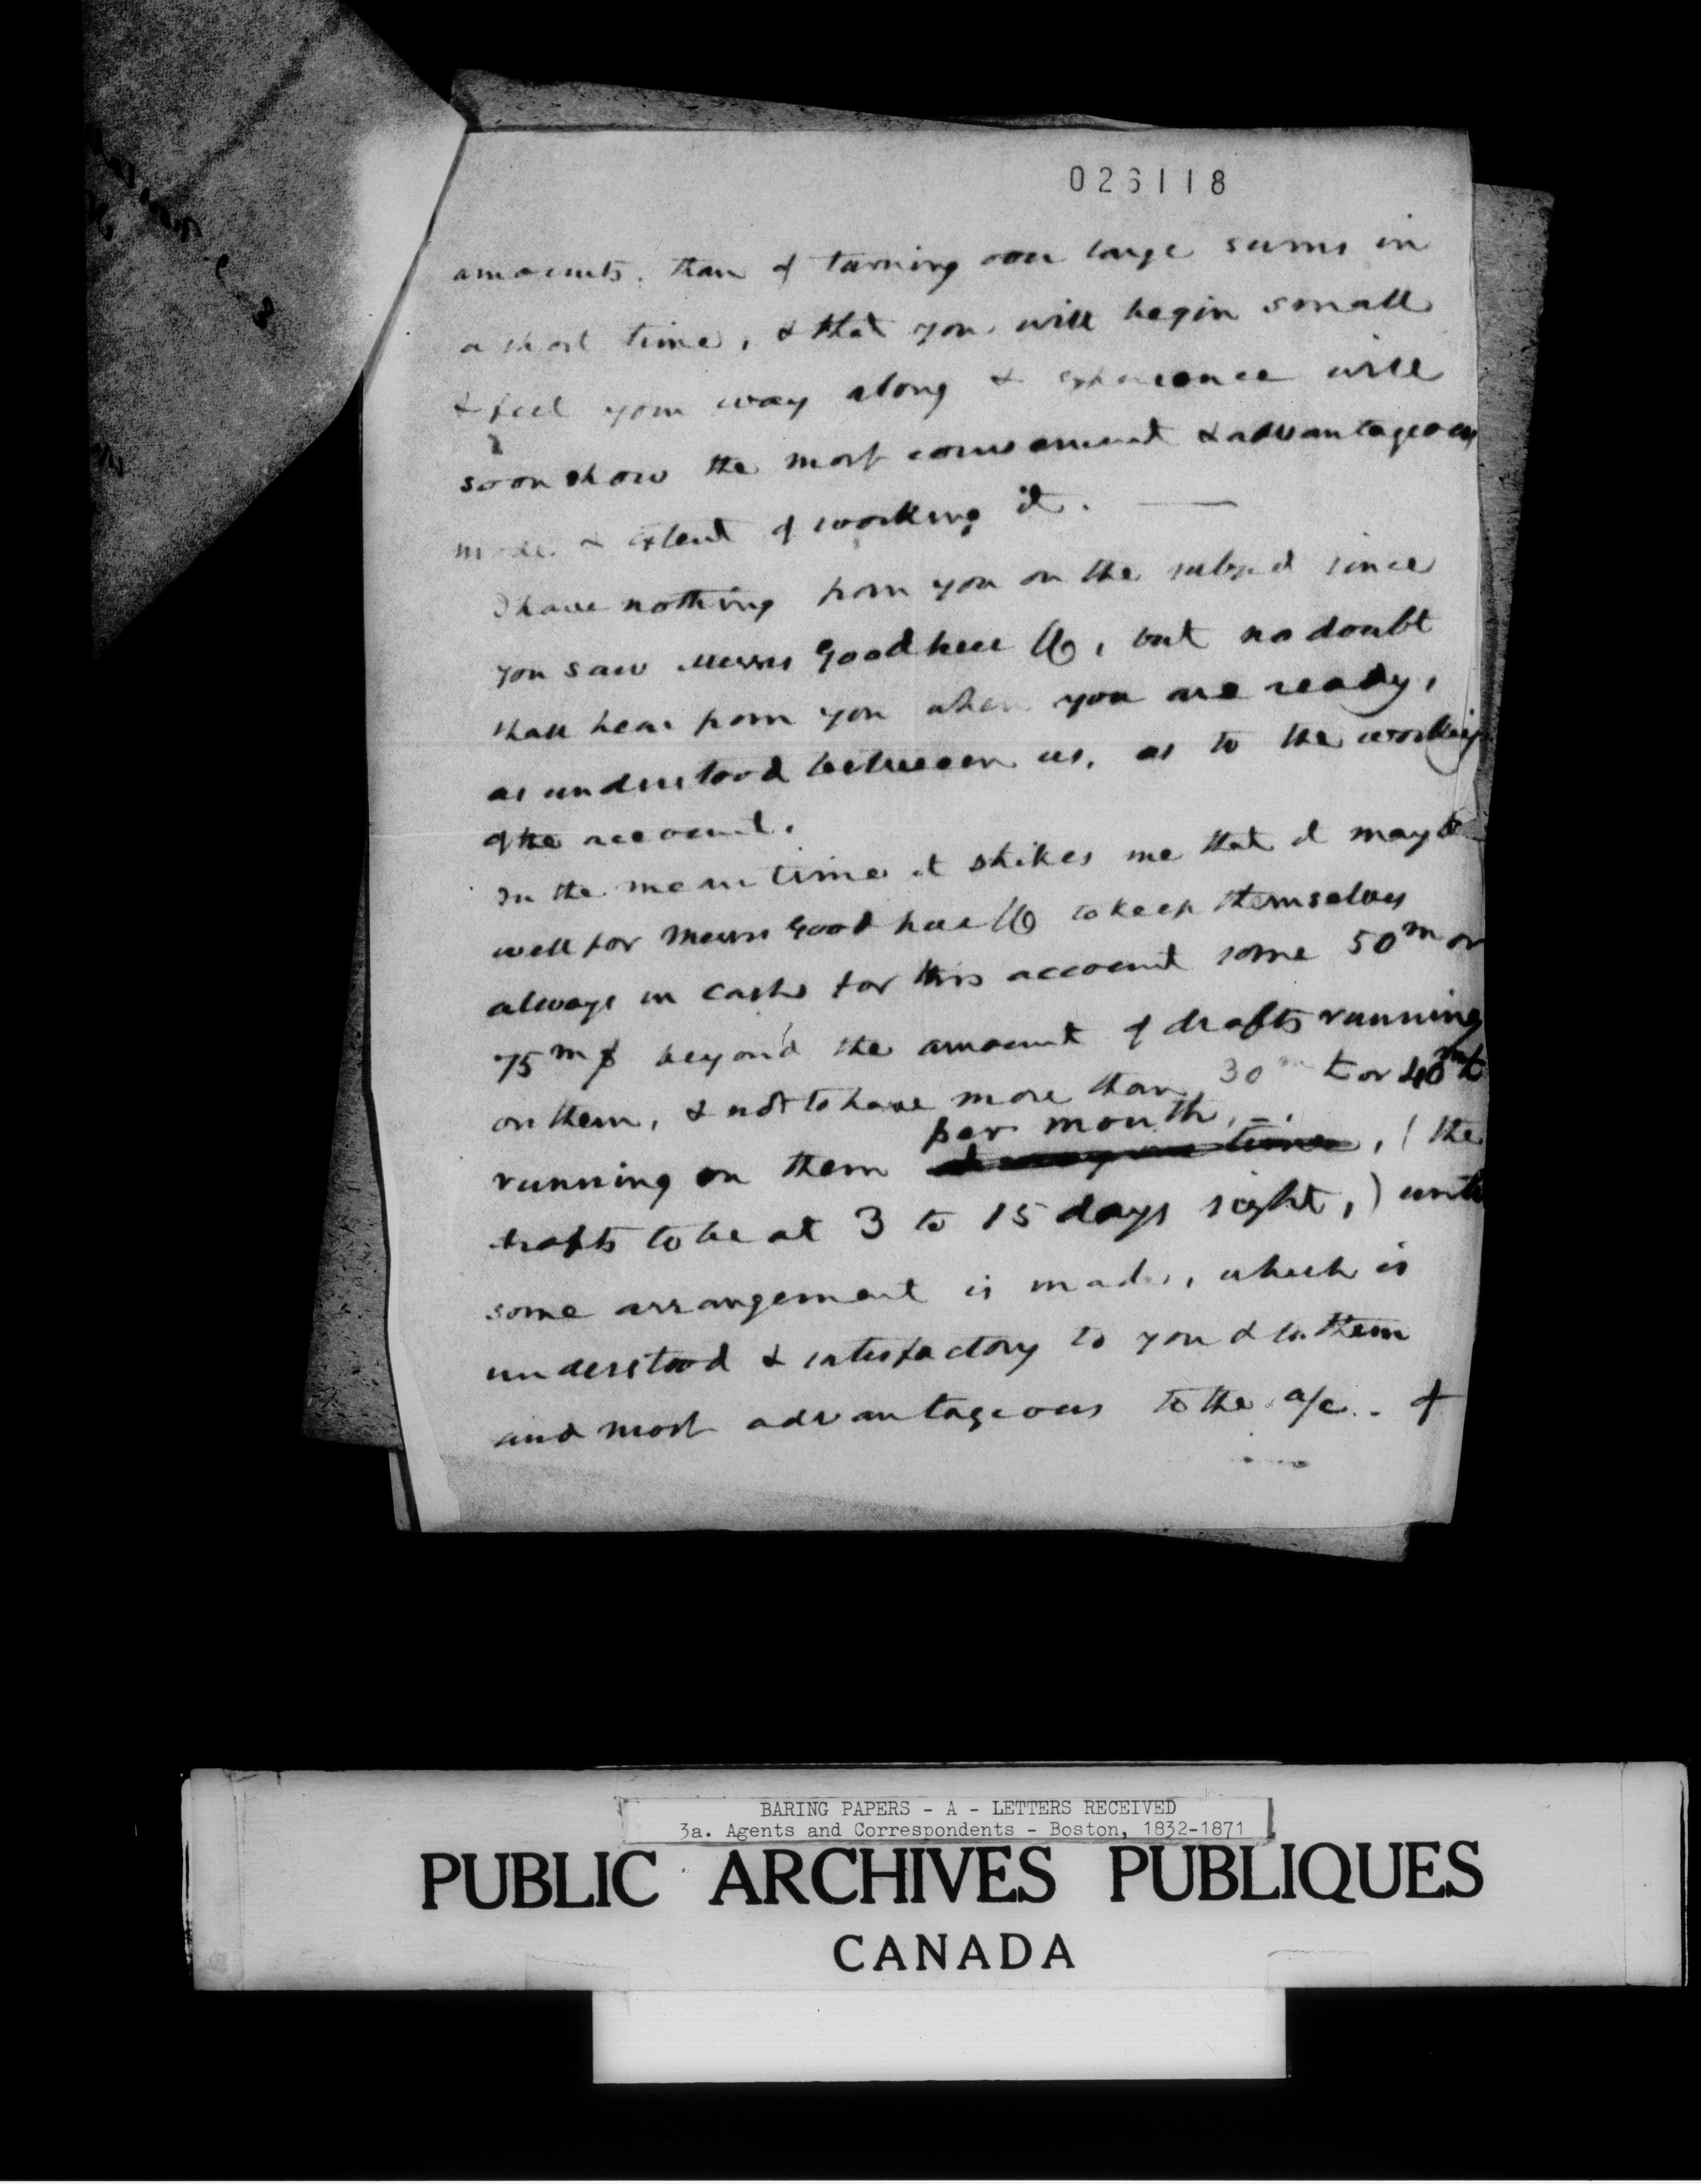 026118
amounts. than of turning over large sums in
a short time, & that you will begin small
& feel your way along & experience will
soon show the most convenient & advantageous
mode & extent of working it. —
I have nothing from you on the subject since
you saw Messrs Goodhue & Co, but no doubt
shall hear from you when you are ready,
as understood between us, as to the working
of the account.
In the mean time it strikes me that it may be
well for Messrs Goodhue & Co to keep themselves
always in cash for this account some 50m or
75m $ beyond the amount of drafts running
on them, & not to have more than 30m to or 40m
per month, -.
running on them at any one time, (the
drafts to be at 3 to 15 days sight,) until
some arrangement is made, which is
understood & satisfactory to you & to them
and most advantageous to the a/c. of
BARING PAPERS - A - LETTERS RECEIVED
3a. Agents and Correspondents - Boston, 1832-1871
PUBLIC ARCHIVES PUBLIQUES
CANADA